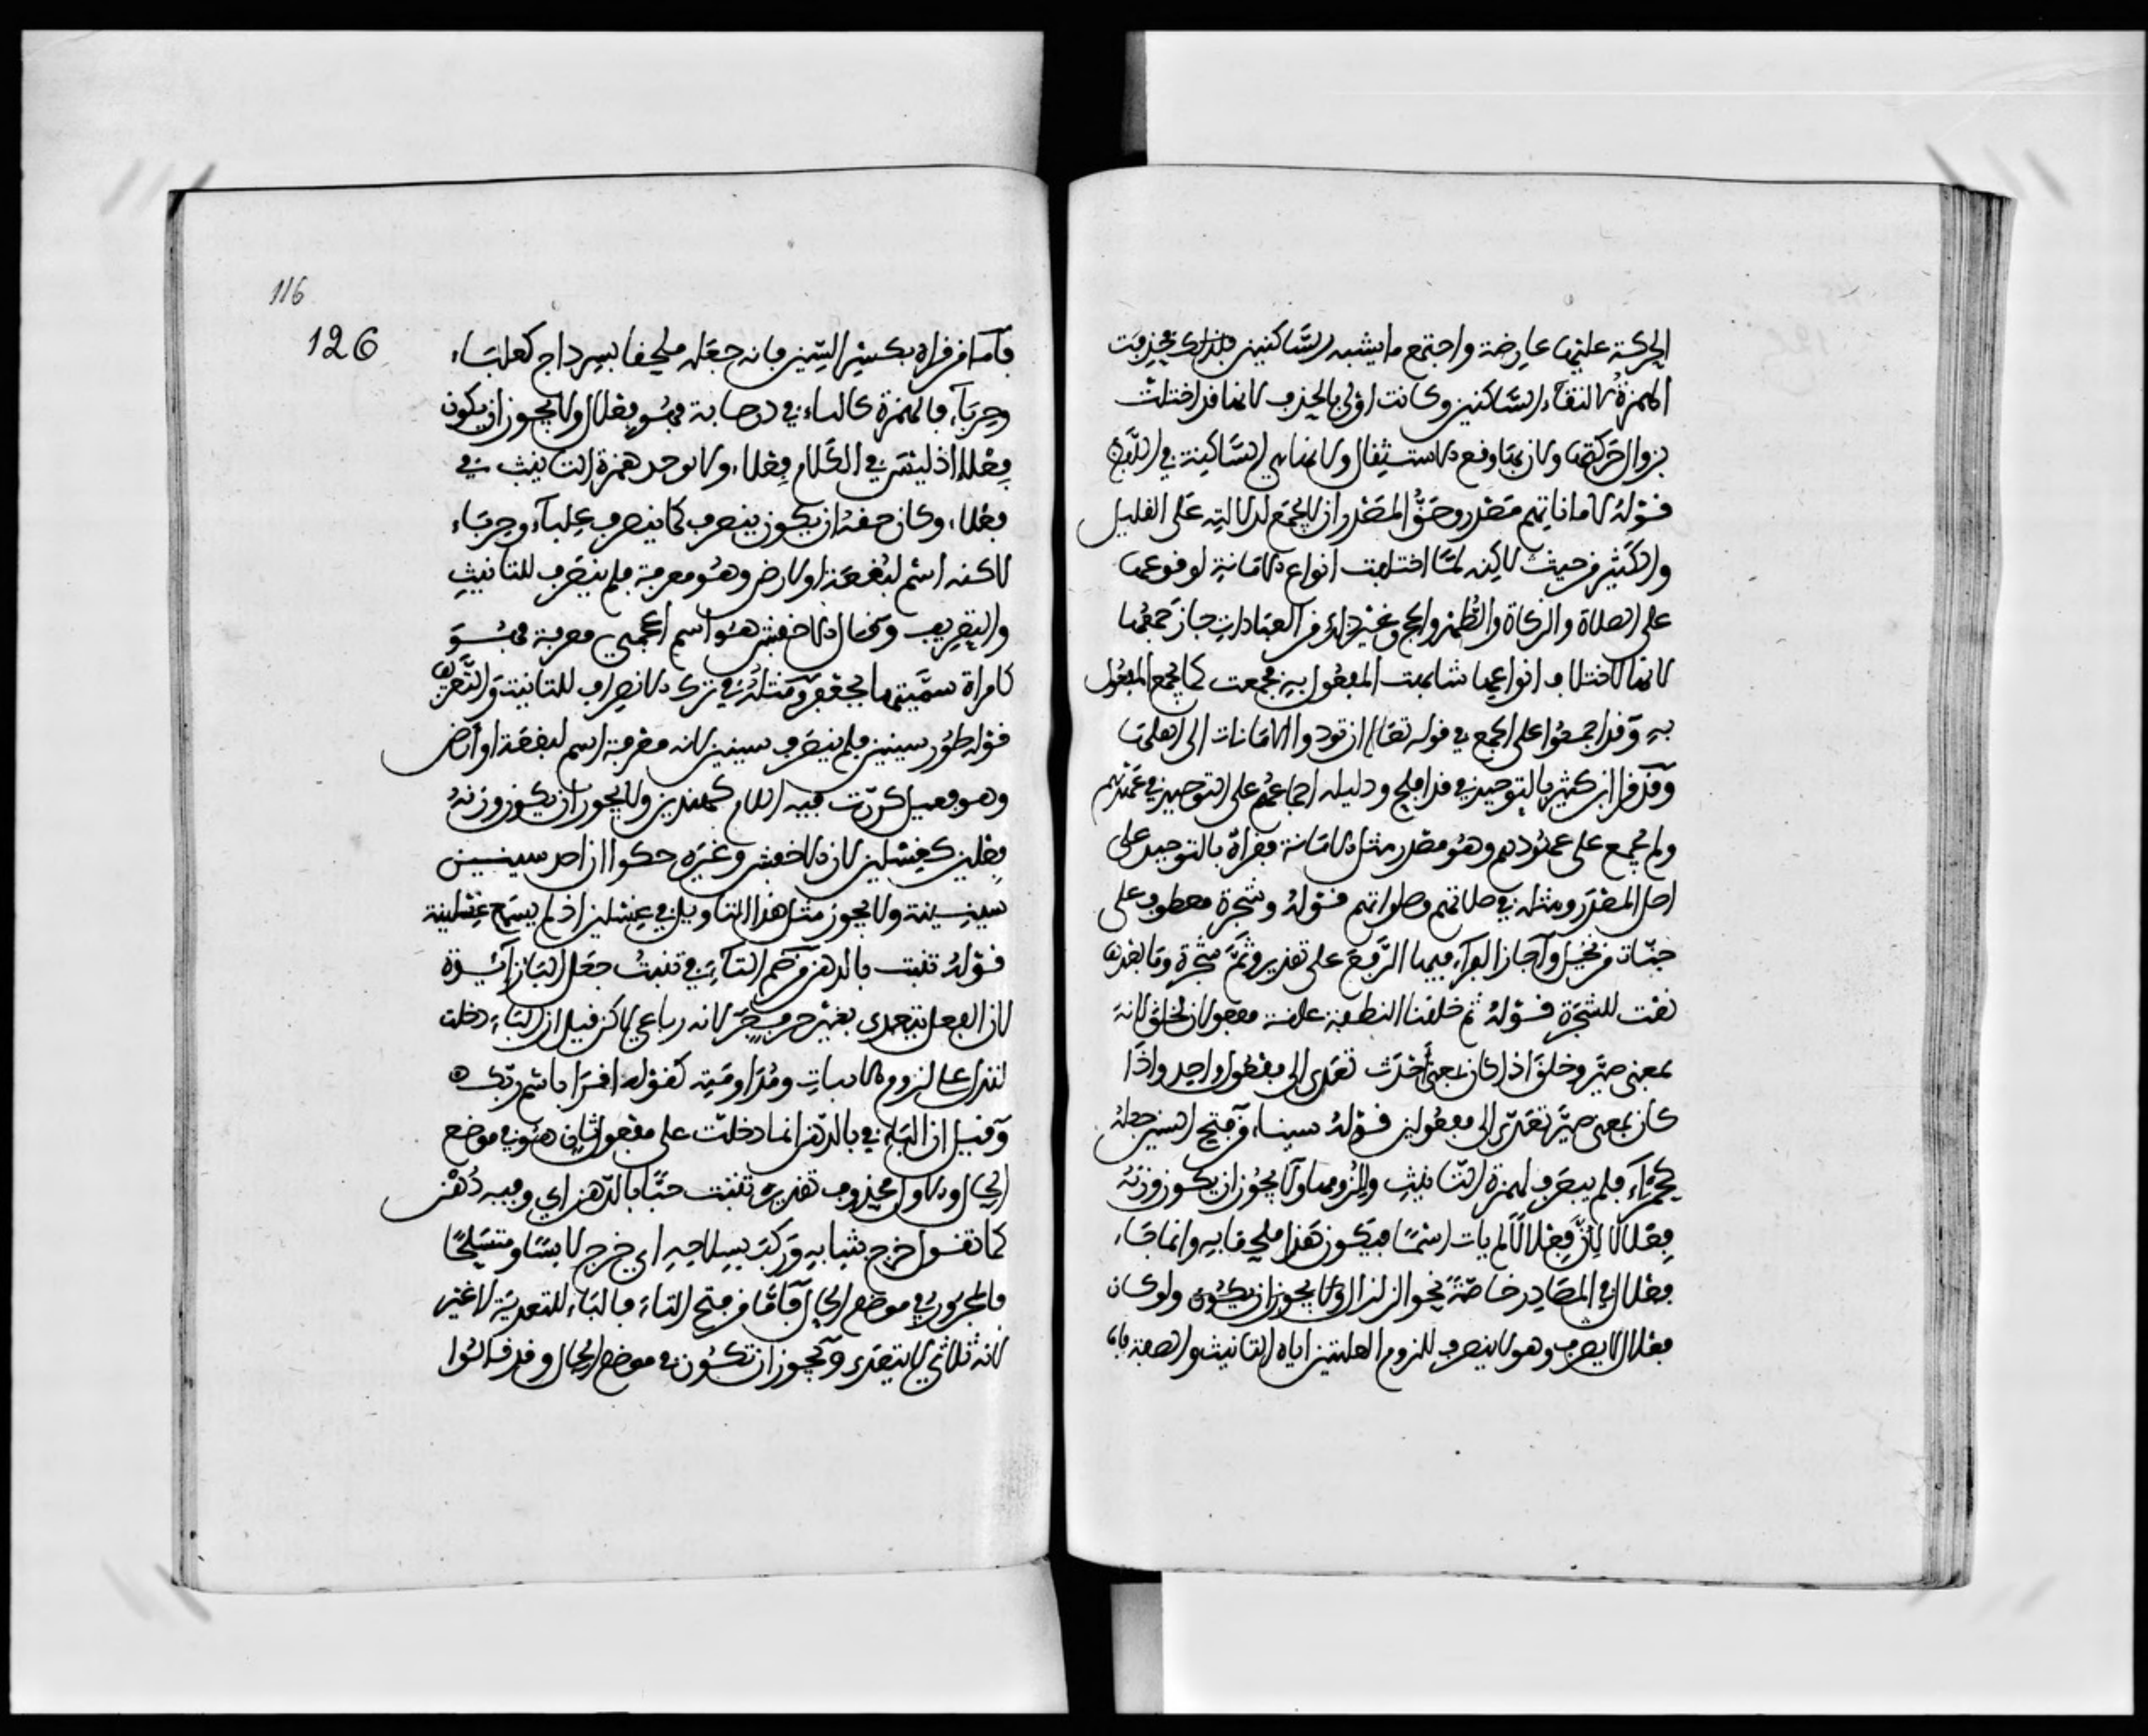 الحركة عليها عارضة واجتمع ما يشبه الساكنين فلذلك فحذفت
الهمزة لالتقاء الساكنين وكانت اولى بالحذف لانها قد اختلت
بزوال حركتها ولان بها وقع الاستثقال ولانها هي الساكنة في اللفظ
قوله لاماناتهم مصدر وحق المصدر ان لا يجمع لدلالته على القليل
والكثير من حيث لاكنه لما اختلفت انواع الامانة لوقوعها
على الصلاة والزكاة والطهر والحج وغير ذلك من العبادات جاز جمعها
لانها لاختلاف انواعها شابهت المفعول به فجمعت كما يجمع المفعول
به وقد اجمعوا على الجمع في قوله تعالى ان تودوا الامانات الى اهلها
وقد قرا ابن كثير بالتوحيد في قد افلح ودليله اجماعهم على التوحيد في عهدهم
ولم يجمع على عهودهم وهو مصدر مثل الامانة فقراه بالتوحيد على
اصل المصدر ومثله في صلاتهم وصلواتهم قوله وشجرة معطوف على
جنات من نخيل واجاز الفراء فيها الرفع على تقدير وثم شجرة وما بعدها
نعت للشجرة قوله ثم خلقنا النطفة علقة مفعولان لخلق لانه
بمعنى صير وخلق اذا كان بمعنى احدث تعدى الى مفعول واحد واذا
كان بمعنى صير تعدى الى مفعولين قوله سيناء من فتح السين جعله
كحمراء فلم ينصرف لهمزة التانيث ولزومها ولا يجوز ان يكون وزنه
فعلالا لان فعلالا لم يات اسما فيكون هذا ملحقا به وانما جاء
فعلال في المصادر خاصة نحو الزلزال ولا يجوز ان يكون ولو كان
فعلالا لانصرف وهو لا ينصرف للزوم العلتين اياه التانيث والصفة فاما
116
126
فاما من قراه بكسر السين فانه جعله ملحقا بسرداح كعلباء
وحرباء فالهمزة كالياء في درحاية فهو فعلال ولا يجوز ان يكون
فعلاء اذ ليس في الكلام فعلاء ولا توجد همزة التانيث في
فعلاء وكان حقه ان يكون ينصرف كما ينصرف علباء وحرباء
لاكنه اسم لبقعة او ارض وهو معرفة فلم ينصرف للتانيث
والتعريف وقال الاخفش هو اسم اعجمي معرفة فهو
كامراة سميتها بجعفر ومثله في ترك الانصراف للتانيث والتعريف
قوله طور سينين فلم ينصرف سينين لانه معرفة اسم لبقعة او ارض
وهو فعليل كررت فيه اللام كخنذيذ ولا يجوز ان يكون وزنه
فعلين كغسلين لان الاخفش وغيره حكوا ان احد سينين
سينينة ولا يجوز مثل هذا التاويل في غسلين اذ لم يسمع غسلينة
قوله تنبت بالدهن من ضم التاء في تنبت جعل الباء زائدة
لان الفعل يتعدى بغير حرف جر لانه رباعي لاكن قيل ان الباء دخلت
لتدل على لزوم الانبات ومداومته كقوله اقرا باسم ربك
وقيل ان الباء في بالدهن انما دخلت على مفعول ثان هو في موضع
الحال والاول محذوف تقديره تنبت جناها بالدهن اي وفيه دهن
كما تقول خرج بثيابه وركب بسلاحه اي خرج لابسا ومتسلحا
فالمجرور في موضع الحال فاما من فتح التاء فالباء للتعدية لا غير
لانه ثلاثي لا يتعدى ويجوز ان تكون في موضع الحال وقد قالوا